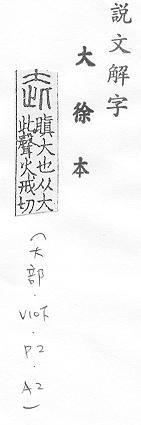 説文解字
大徐本
瞋大也从大
此聲火戒切
(大部.V10下.P2.A2)